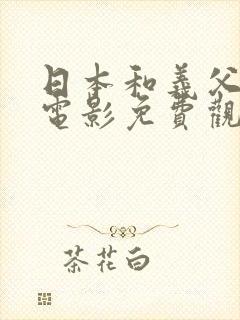 日本和義父
電影免費觀
茶花白